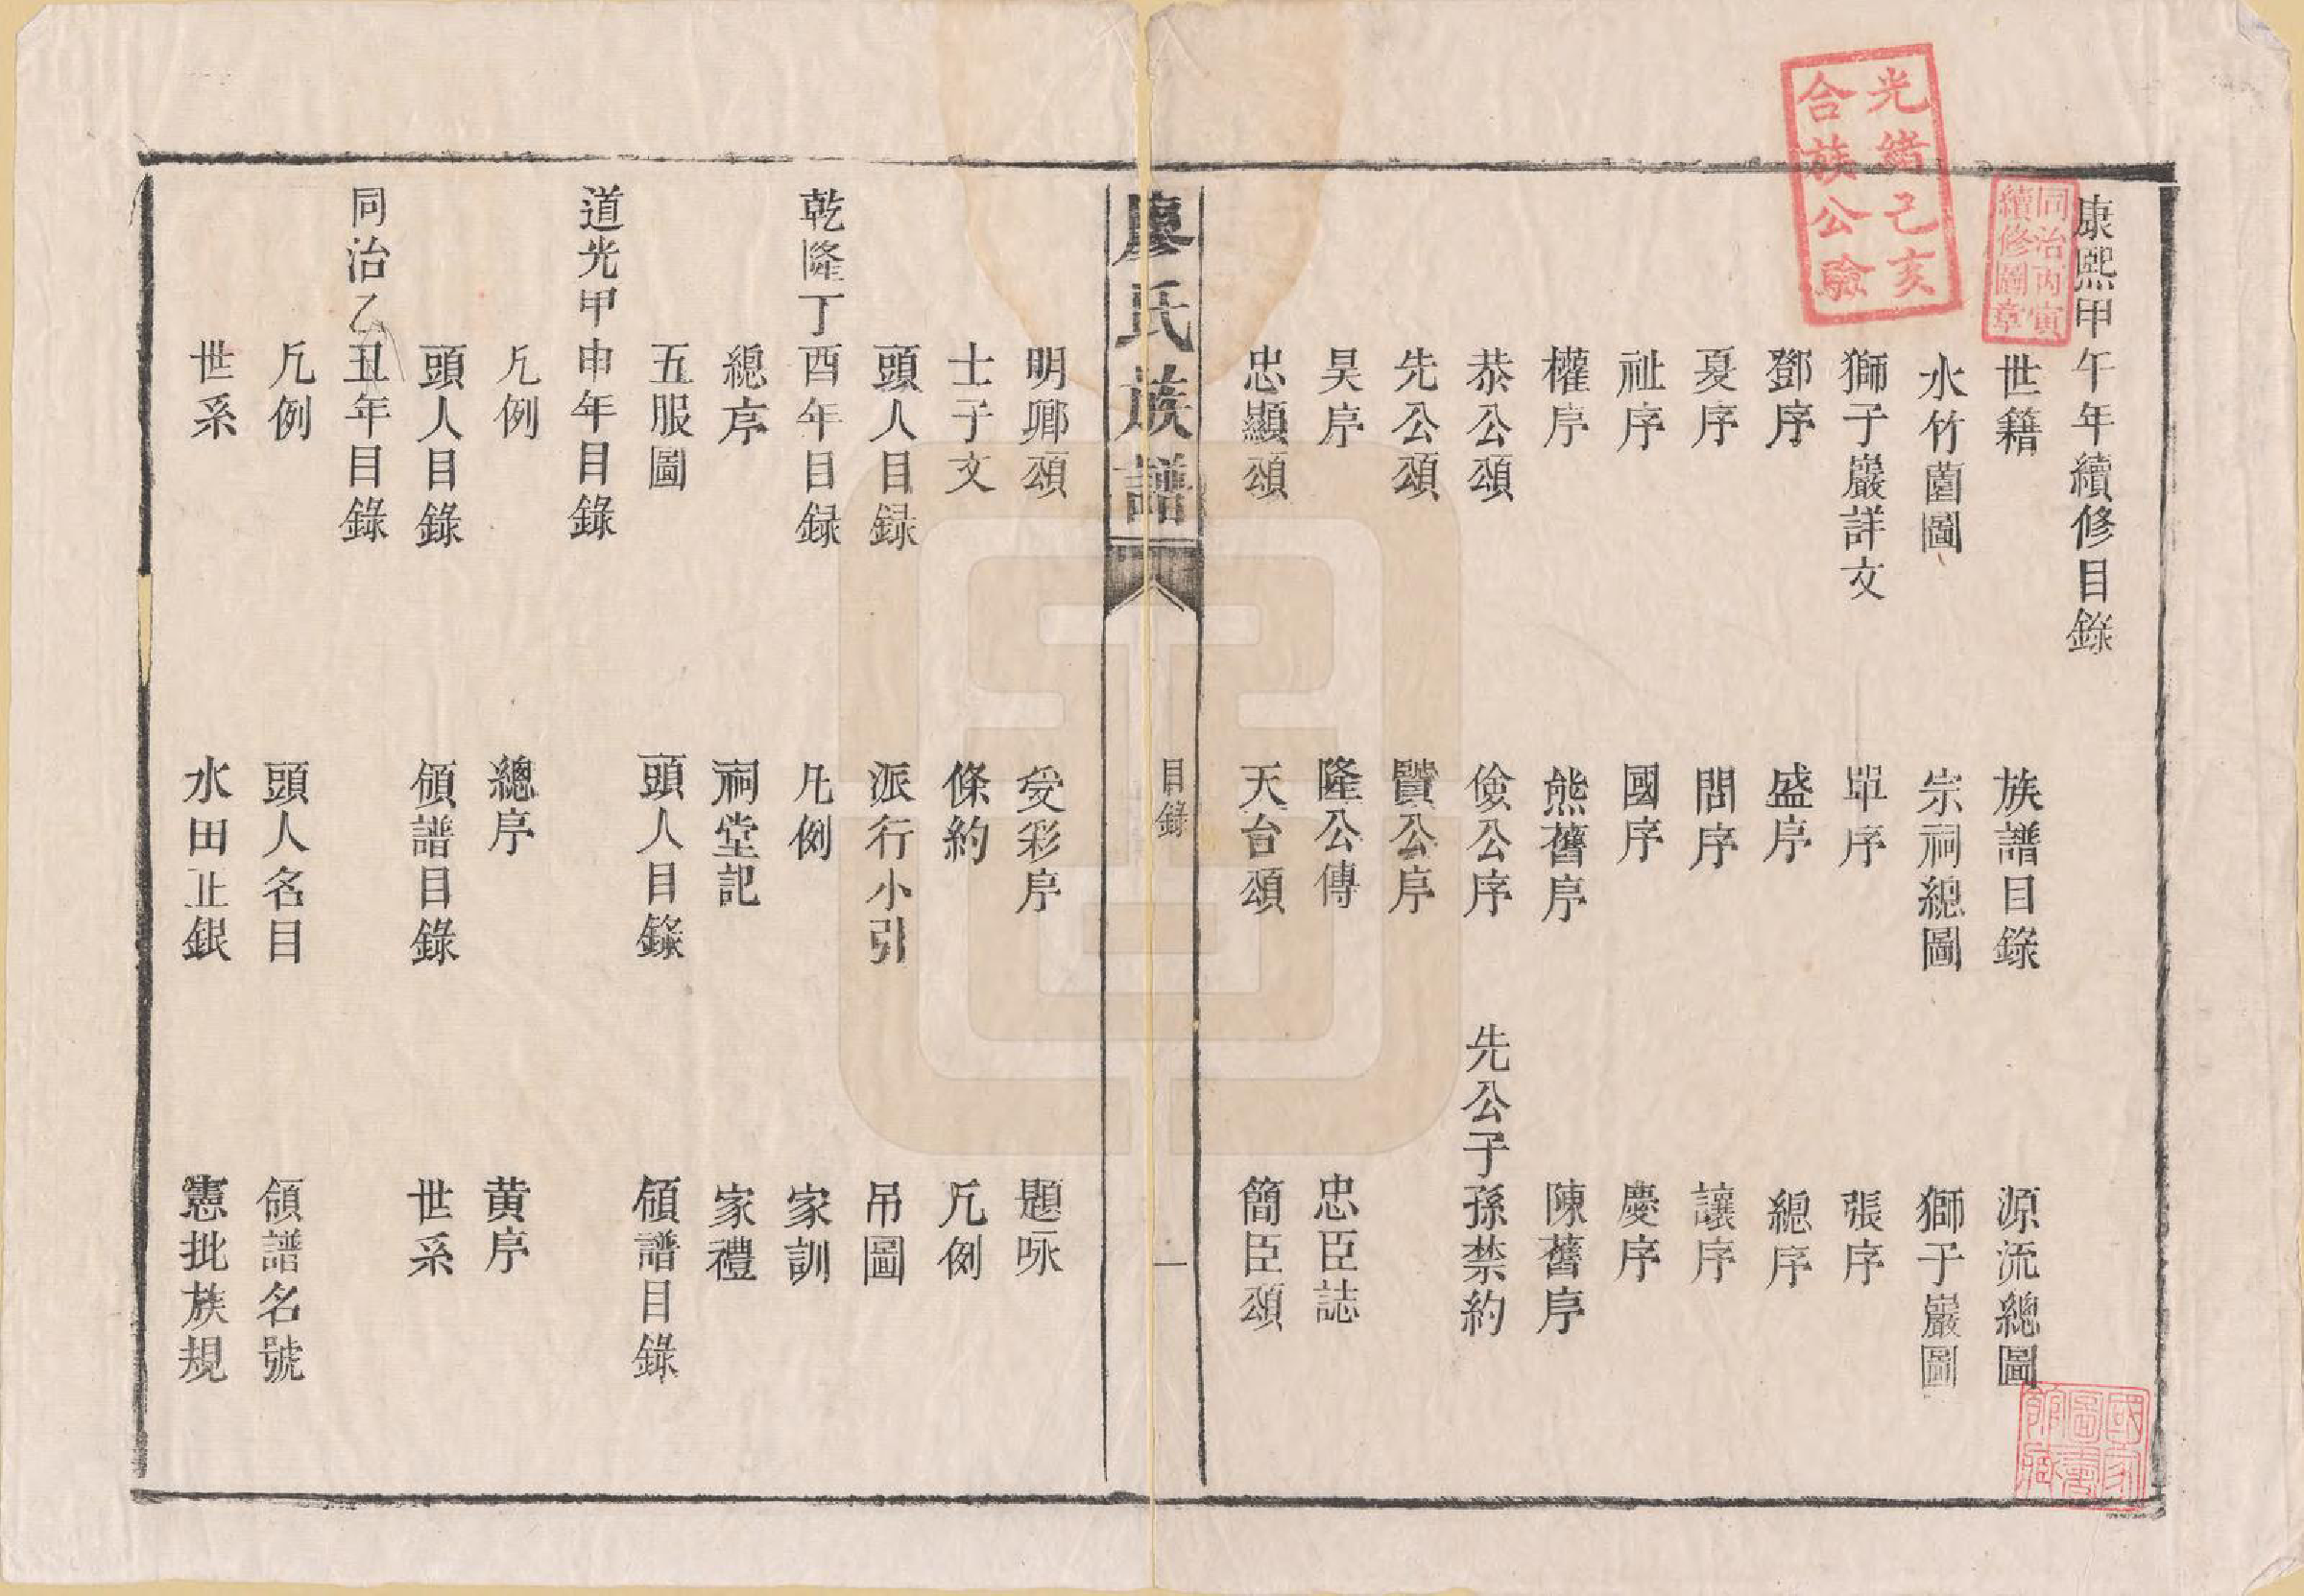 康熙甲午年續修目錄
世籍　族譜目錄　源流總圖
水竹薗圖　宗祠總圖　獅子巖圖
獅子巖詳文　單序　張序
鄧序　盛序　總序
夏序　問序　讓序
祉序　國序　慶序
權序　熊舊序　陳舊序
恭公頌　儉公序　先公子孫禁約
先公頌　贒公序
昊序　隆公傳　忠臣誌
忠顯頌　天台頌　簡臣頌
廖氏族譜　目錄　一
明卿頌　受彩序　題咏
士子文　條約　凡例
頭人目録　派行小引　吊圖
乾隆丁酉年目録　凡例　家訓
總序　祠堂記　家禮
五服圖　頭人目錄　領譜目錄
道光甲申年目錄
凡例　總序　黄序
頭人目錄　領譜目錄　世系
同治乙丑年目錄
凡例　頭人名目　領譜名號
世系　水田正銀　憲批族規
光緒己亥
合族公驗
同治丙寅
續修圖章
國家
圖書
館藏